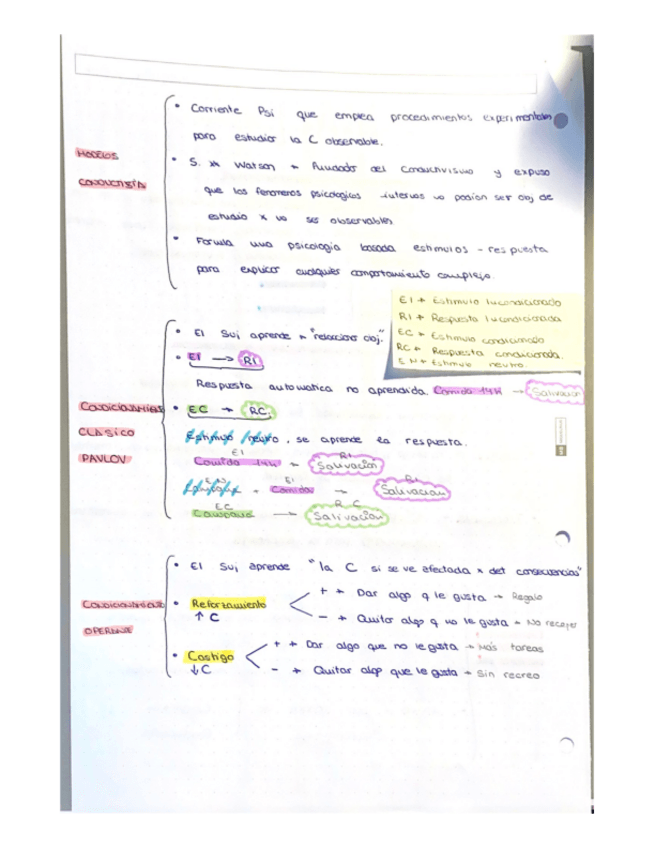 • Corriente Psi que emplea procedimientos experimentales
para estudiar la C observable.
MODELOS
CONDUCTISTA
• S. XX Watson → Fundador del Conductivismo y expuso
que los fenomenos psicologicos internos no podian ser obj de
estudio x no ser observables
• Formula una psicologia basada estimulos - respuesta
para explicar cualquier comportamiento complejo.
EI → Estimulo Incondicionado
RI → Respuesta Incondicionada
EC → Estimulo condicionado
RC → Respuesta condicionada.
EN → Estimulo neutro.
• El Suj aprende → "relacionar obj."
• EI → RI
Respuesta automatica no aprendida. Comida → Salivacion
CONDICIONAMIENTO
CLASICO
PAVLOV
• EC → RC
Estimulo neutro, se aprende la respuesta.
EI RI
Comida → Salivación
EN EI RI
Campana + Comida → Salivacion
EC RC
Campana → Salivación
• El Suj aprende "la C si se ve afectada x det consecuencias"
CONDICIONAMIENTO
OPERANTE
• Reforzamiento
↑ C
+ → Dar algo q le gusta → Regalo
- → Quitar algo q no le gusta → No recoger
• Castigo
↓ C
+ → Dar algo que no le gusta → Más tareas
- → Quitar algo que le gusta → Sin recreo